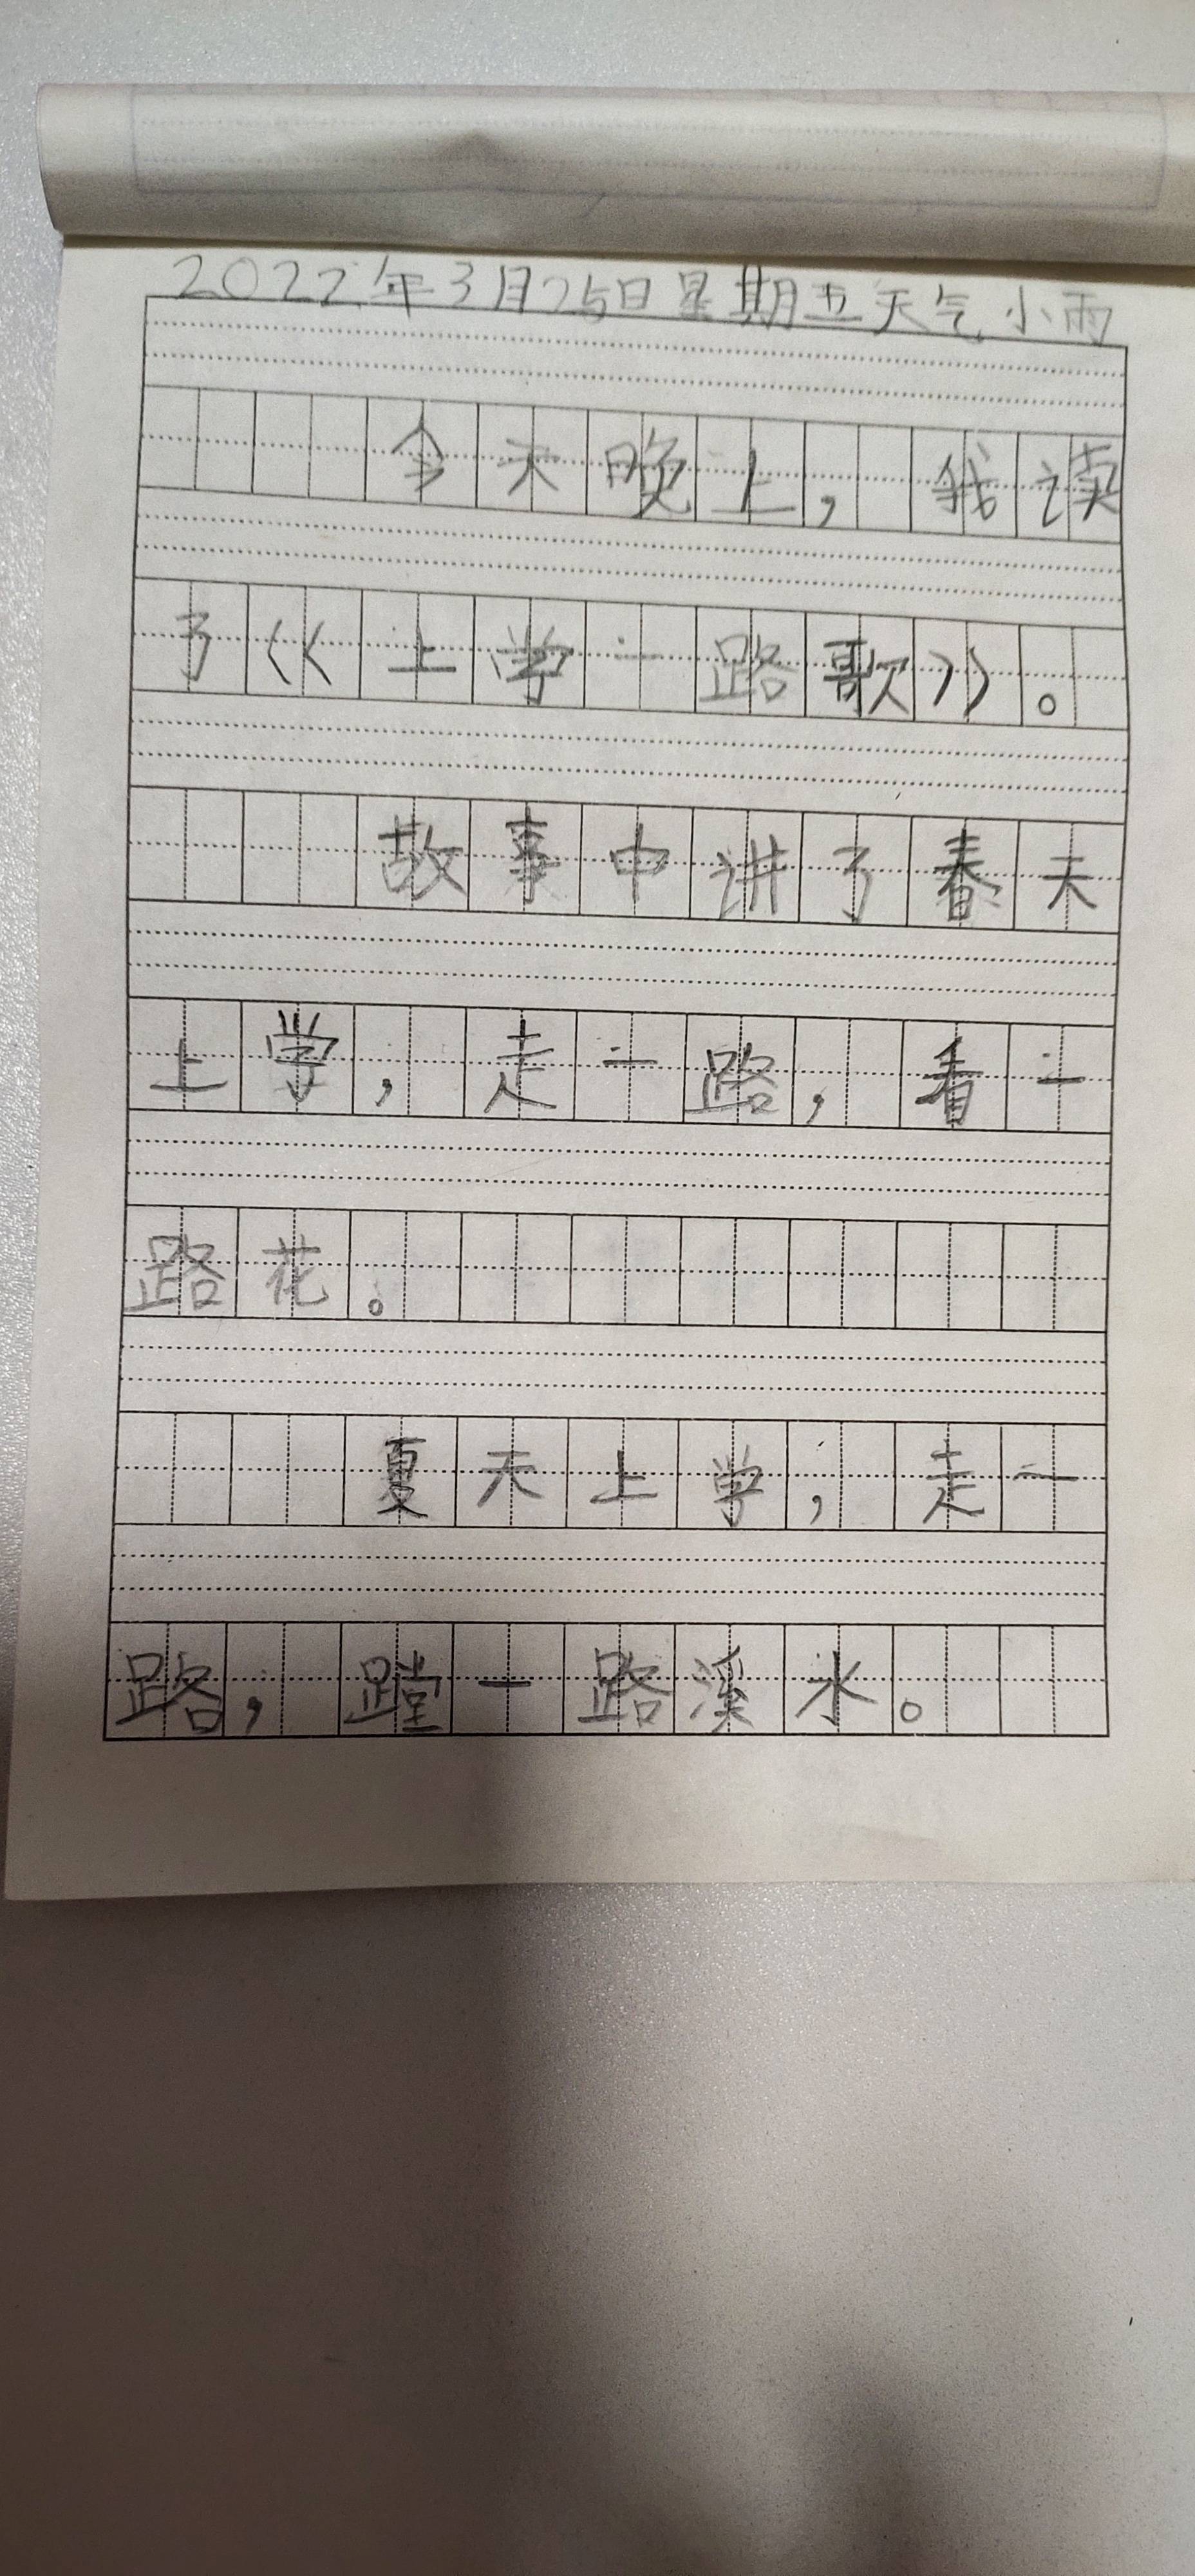 2022年3月25日星期五天气小雨
今天晚上，我读
了《上学一路歌》。
故事中讲了春天
上学，走一路，看一
路花。
夏天上学，走一
路，蹚一路溪水。